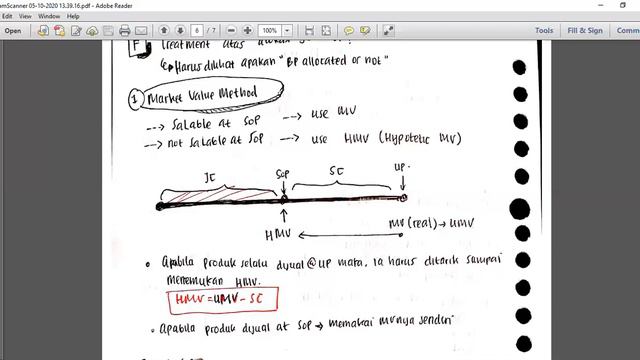 amScanner 05-10-2020 13.39.16.pdf - Adobe Reader
Edit View Window Help
Open 6 / 7 100% Tools Fill & Sign Comment
F Treatment atas
↳ Harus dilihat apakah "BP allocated or not"
① Market Value Method
---> Salable at SOP ---> use MV
---> not Salable at SOP ---> use HMV (Hypotetic MV)
JC SOP SC UP.
HMV MV (real) → UMV
• Apabila produk selalu dijual @ UP maka, ia harus ditarik sampai
menemukan HMV.
HMV = UMV - SC
• Apabila produk dijual at SOP → memakai MVnya sendiri